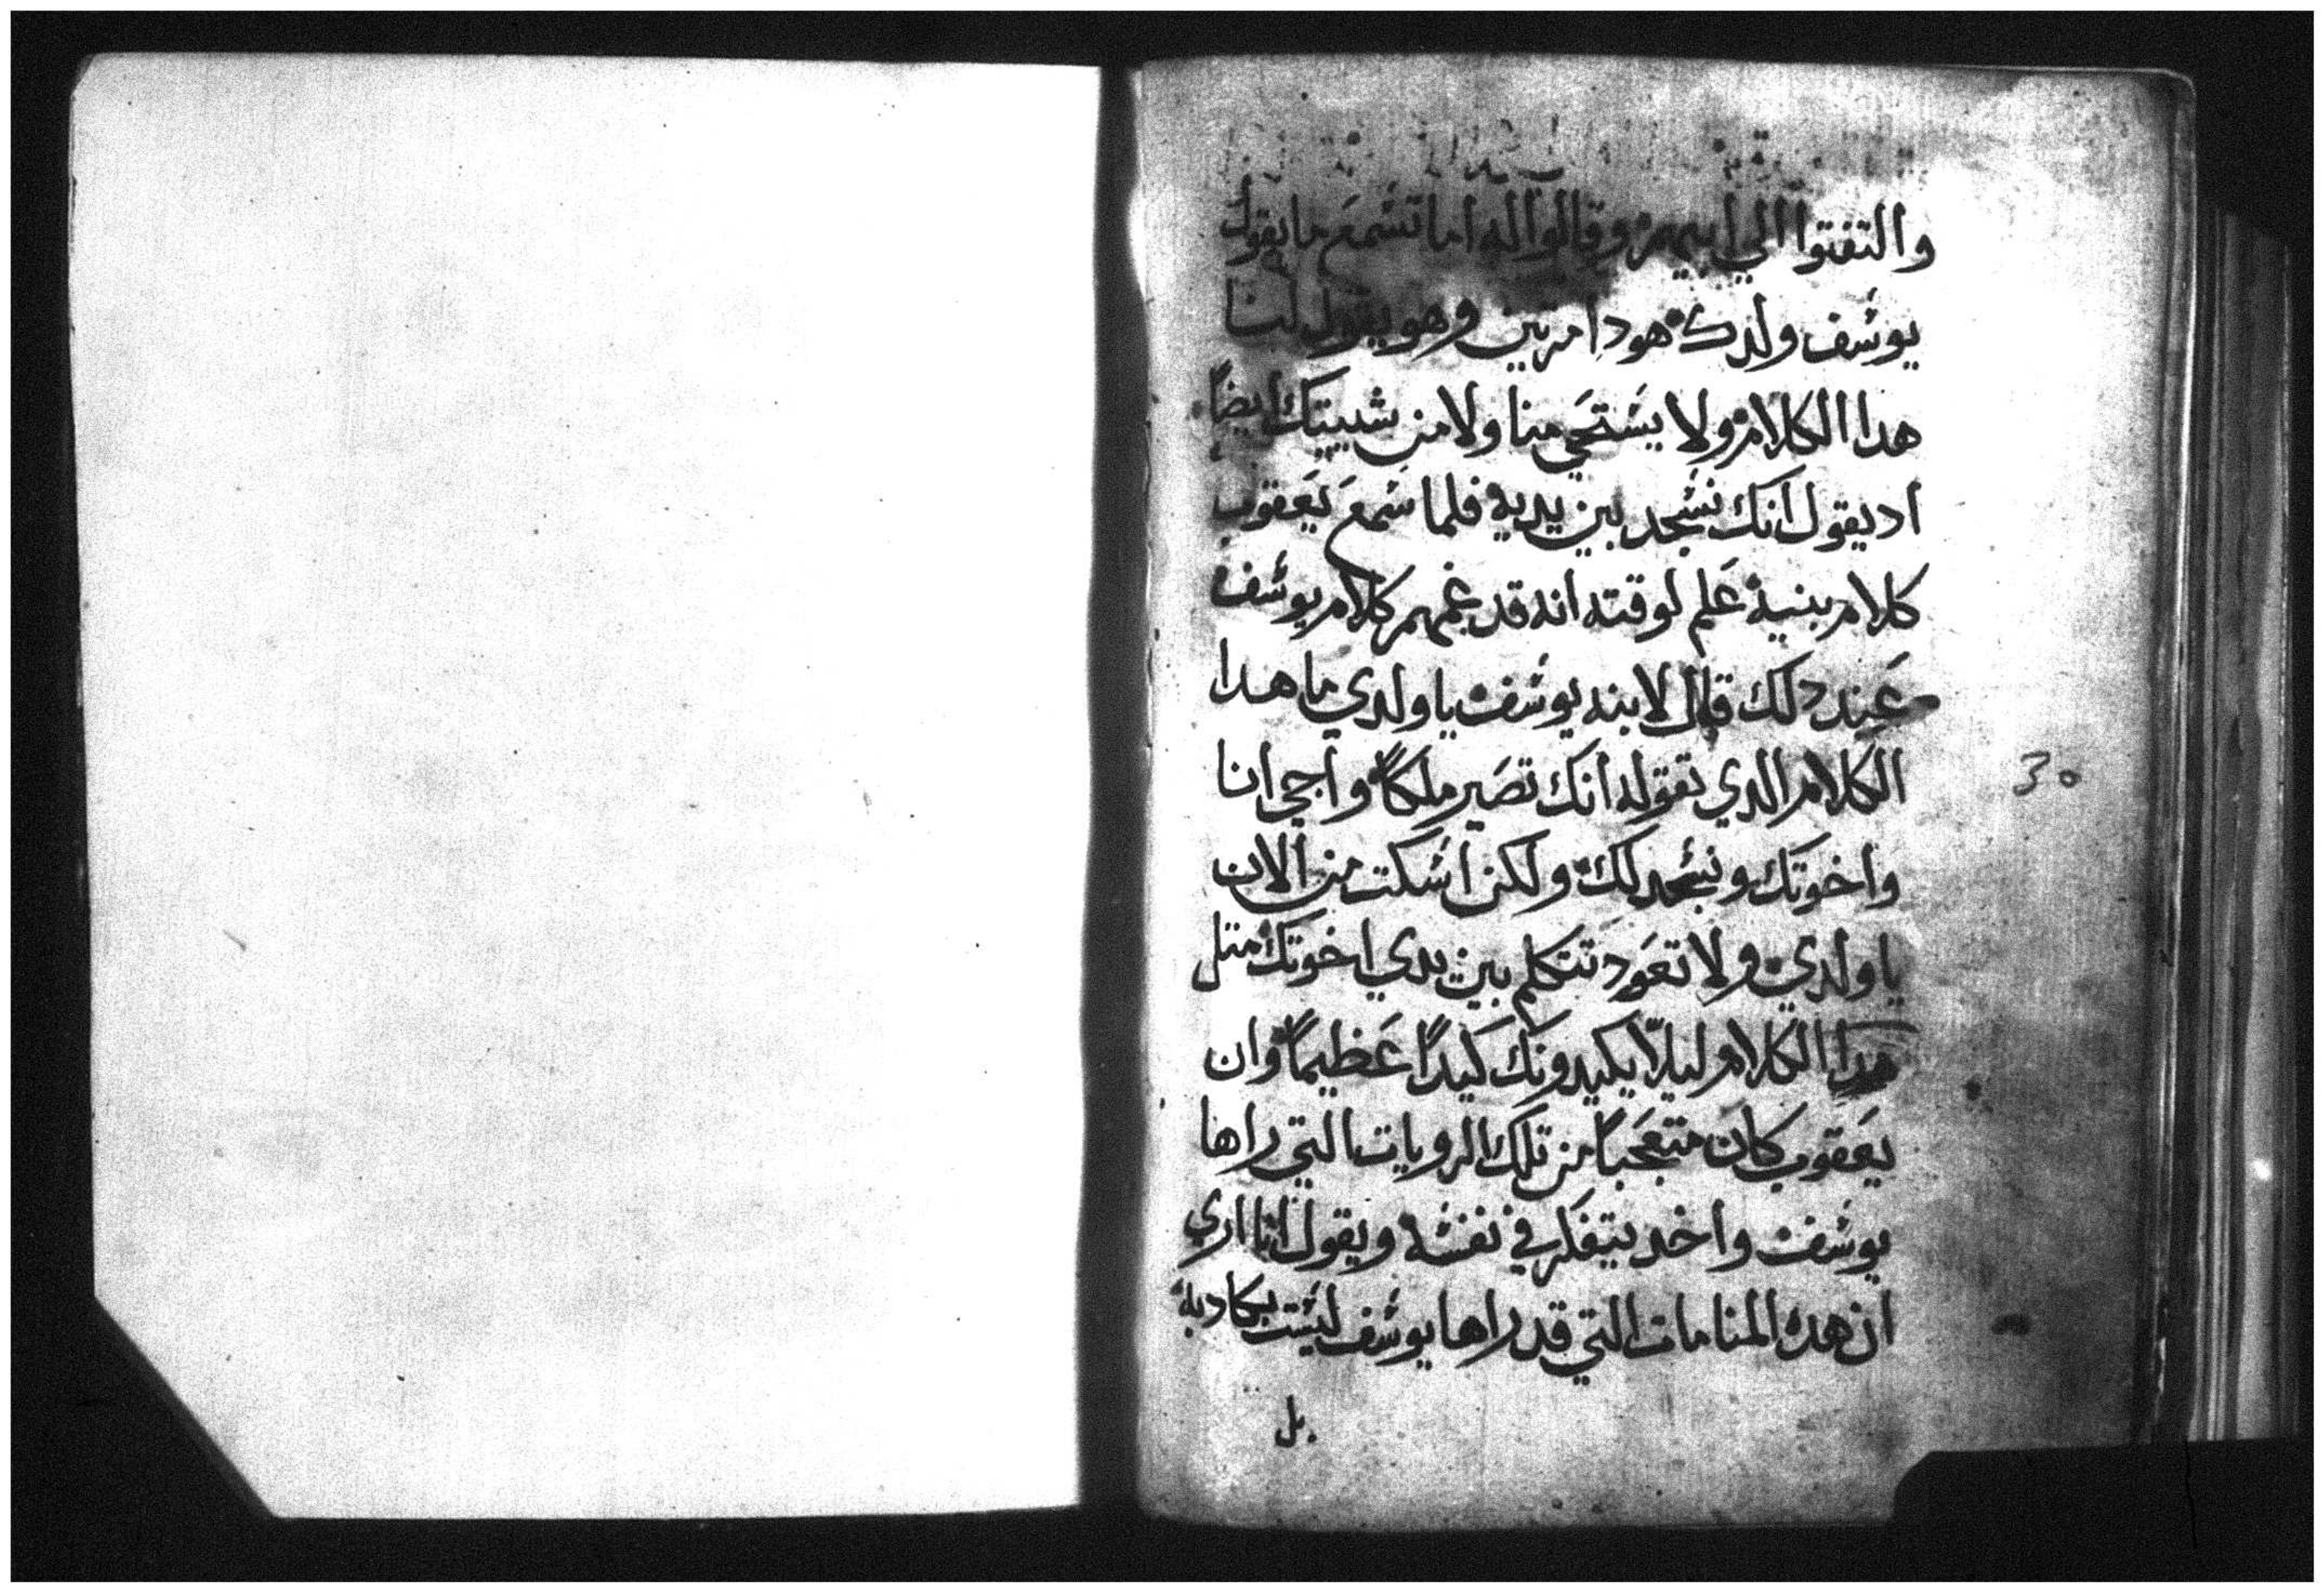 والتفتوا الي ابيهم وقالوا له اما تسمع ما يقول
يوسف ولدك هودا مرتين وهو يقول لنا
هدا الكلام ولا يستحي منا ولا من شيبتك ايضاً
اد يقول انك تسجد بين يديه فلما سمع يعقوب
كلام بنيه علم لوقته انه قد غمهم كلام يوسف
عند دلك قال لابنه يوسف يا ولدي ما هدا
الكلام الدي تقوله انك تصير ملكاً واجي انا
واخوتك ونسجد لك ولكن اسكت من الان
يا ولدي ولا تعود تتكلم بين يدي اخوتك متل
هدا الكلام ليلاّ يكيدونك كيداً عظيماً وان
يعقوب كان متعجباً من تلك الرويات التي راها
يوسف واخد يتفكر في نفسه ويقول انا اري
ان هده المنامات التي قد راها يوسف ليست بكادبة
بل
30